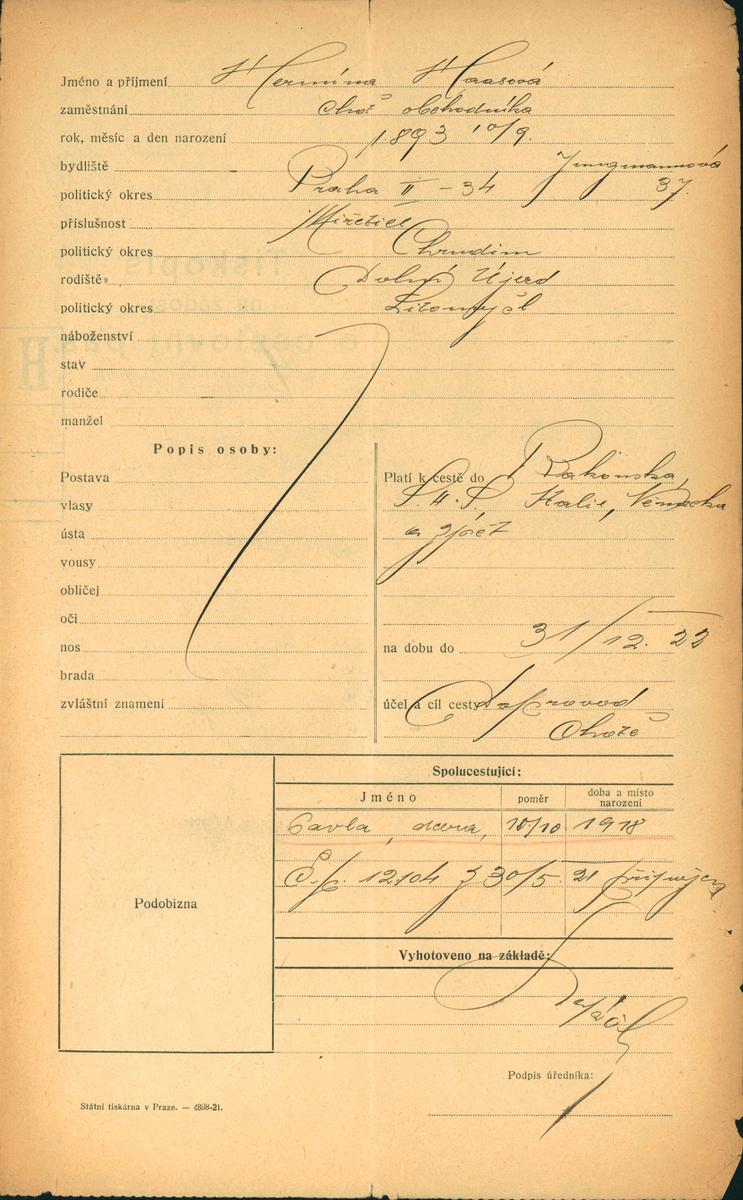 Jméno a příjmení Hermína Haasová
zaměstnání choť obchodníka
rok, měsíc a den narození 1893 10/9.
bydliště Jungmannova
politický okres Praha II - 34 37.
příslušnost Miřetice
politický okres Chrudim
rodiště Dolní Újezd
politický okres Litomyšl
náboženství
stav
rodiče
manžel
Popis osoby:
Postava
vlasy
ústa
vousy
obličej
oči
nos
brada
zvláštní znamení
Platí k cestě do Rakouska,
S.H.S. Italie, Německa
a zpět
na dobu do 31/12. 22
účel a cíl cesty doprovod
chotě
Podobizna
Spolucestující:
Jméno poměr doba a místo narození
Pavla, dcera, 10/10 1918
Č.p. 12104 z 30/5 21
Vyhotoveno na základě:
Podpis úředníka:
Státní tiskárna v Praze. — 4898-21.